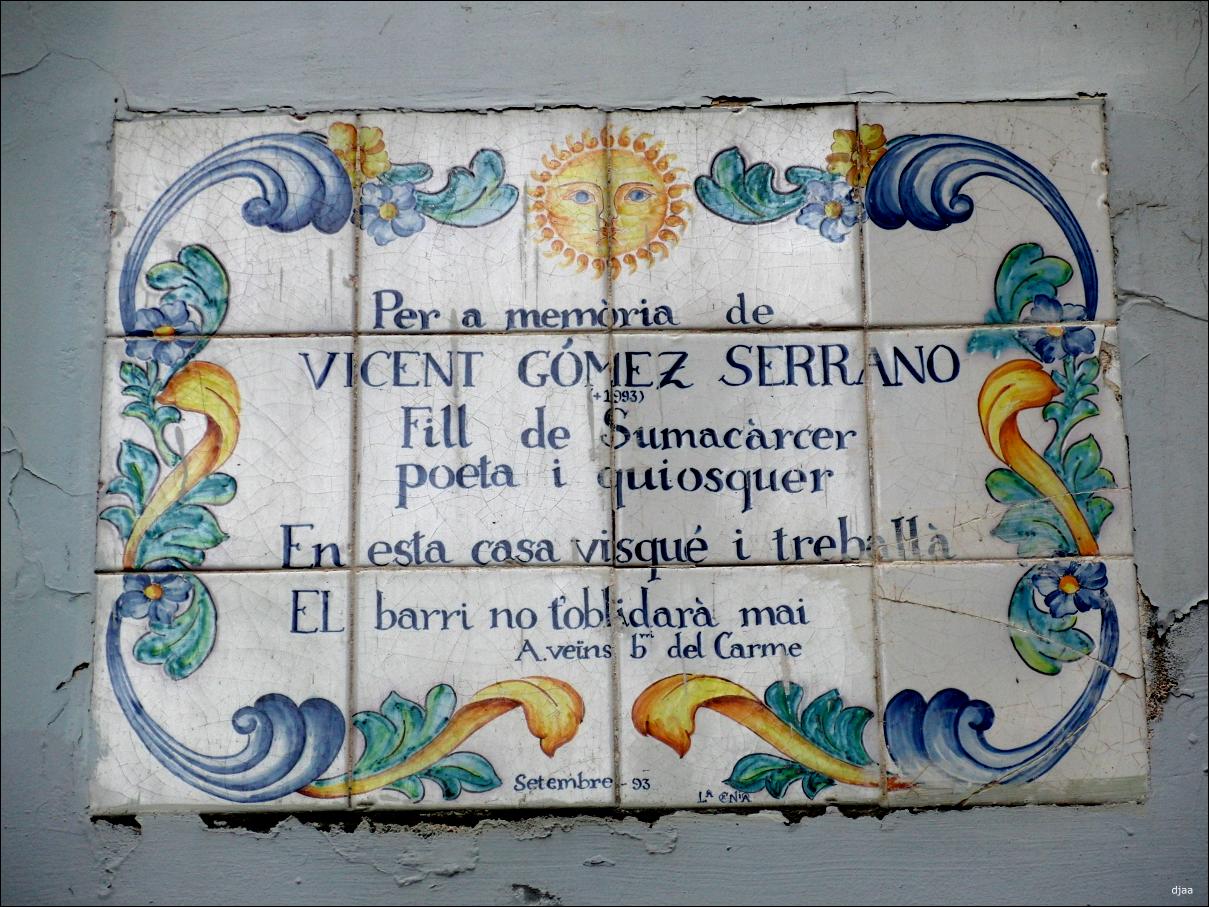 Per a memòria de
VICENT GÓMEZ SERRANO
(+1993)
Fill de Sumacàrcer
poeta i quiosquer
En esta casa visqué i treballà
EL barri no t'oblidarà mai
A.veïns bʳʳⁱ del Carme
Setembre - 93
Lᴬ CENIA
djaa